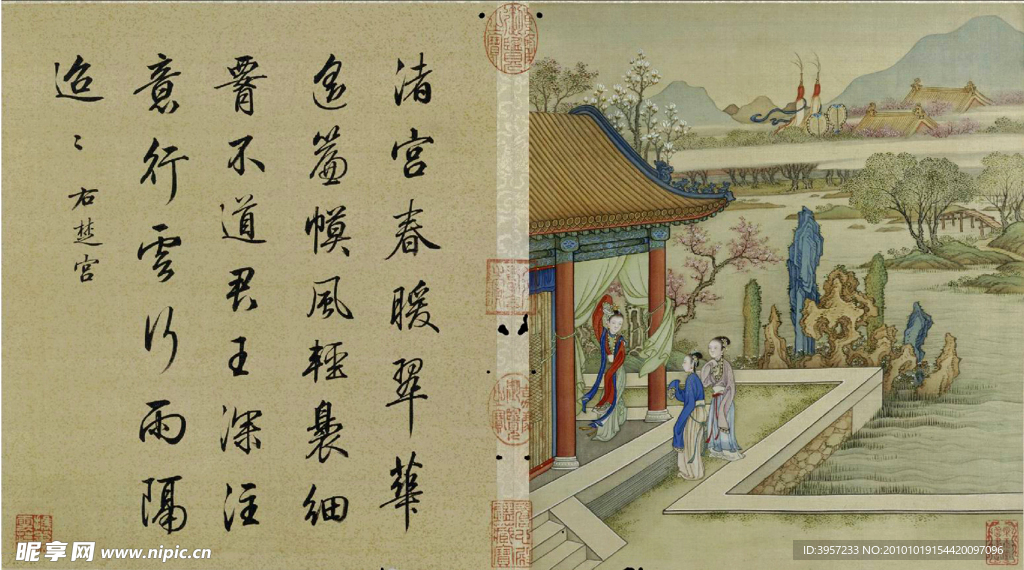 渚宮春暖翠華
遙簾幙風輕裊細
腰不道君王深注
意行雲行雨隔
迢〻 右楚宮
昵享网 www.nipic.cn
ID:3957233 NO:20101019154420097096